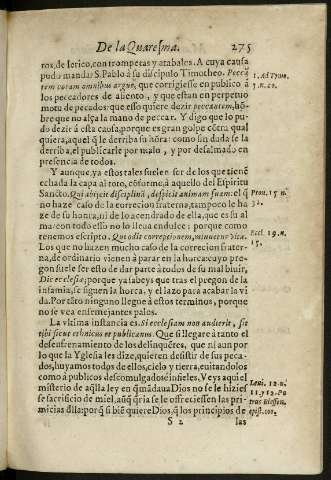 De la Quaresma. 275
ros, de Ierico, con trompetas y atabales. A cuya causa
pudo mandar S. Pablo à su discipulo Timotheo. Peccã
tem coram omnibus argue, que corrigiesse en publico â
los peccadores de aliento, y que estan en perpetuo
motu de pecados: que esso quiere dezir peccantem, hõ-
bre que no alça la mano de peccar. Y digo que lo pu-
do dezir â esta causa, porque es gran golpe cõtra qual
quiera, aquel q̃ le derriba su hõra: como sin duda se la
derriba, el publicarle por malo, y por desalmado en
presencia de todos.
1. ad Tymo.
5. n. 20.
Y aunque, ya estos tales suelẽ ser de los que tienẽ
echada la capa al toro, cõforme, â aquello del Espiritu
Sancto. Qui abijcit disciplinã, despicit animam suam: el q̃
no haze caso de la correcion fraterna, tampoco le ha
ze de su honra, ni de lo acendrado de ella, que es su al
ma: con todo esso no lo lleua endulce: porque como
renemos escripto. Qui odit correptionem, minuetur vita.
Los que no hazen mucho caso de la correcion frater-
na, de ordinario vienen à parar en la horca: cuyo pre-
gon suele ser esto de dar parte â todos de su mal biuir,
Dic ecclesiæ; porque ya sabeys que tras el pregon de la
infamia, se siguen la horca, y el lazo para acabar la vi
da. Por esto ninguno llegue â estos terminos, porque
no se vea en semejantes palos.
Prou. 15. n.
32.
Eccl. 19. n.
15.
La vltima instancia es. Si ecclesiam non audierit, sit
tibi sicut ethnicus et publicanus. Que si llegare â tanto el
desenfrenamiento de los delinquẽtes, que ni aun por
lo que la Yglesia les dize, quieren desistir de sus peca-
dos, huyamos todos de ellos, cielo y tierra, euitandolos
como â publicos descomulgados ê infieles. Veys aqui el
misterio de aq̃lla ley en q̃ mãdaua Dios no se le hizies
se sacrificio de miel, aũq̃ q̃ria se le offreciessen las pri-
micias dlla: porq̃ si biẽ quiere Dios, q̃ los principios de
Leui. 12. n.
11. y 12. Pe-
trus Blessen.
epist. 101.
S 2 las